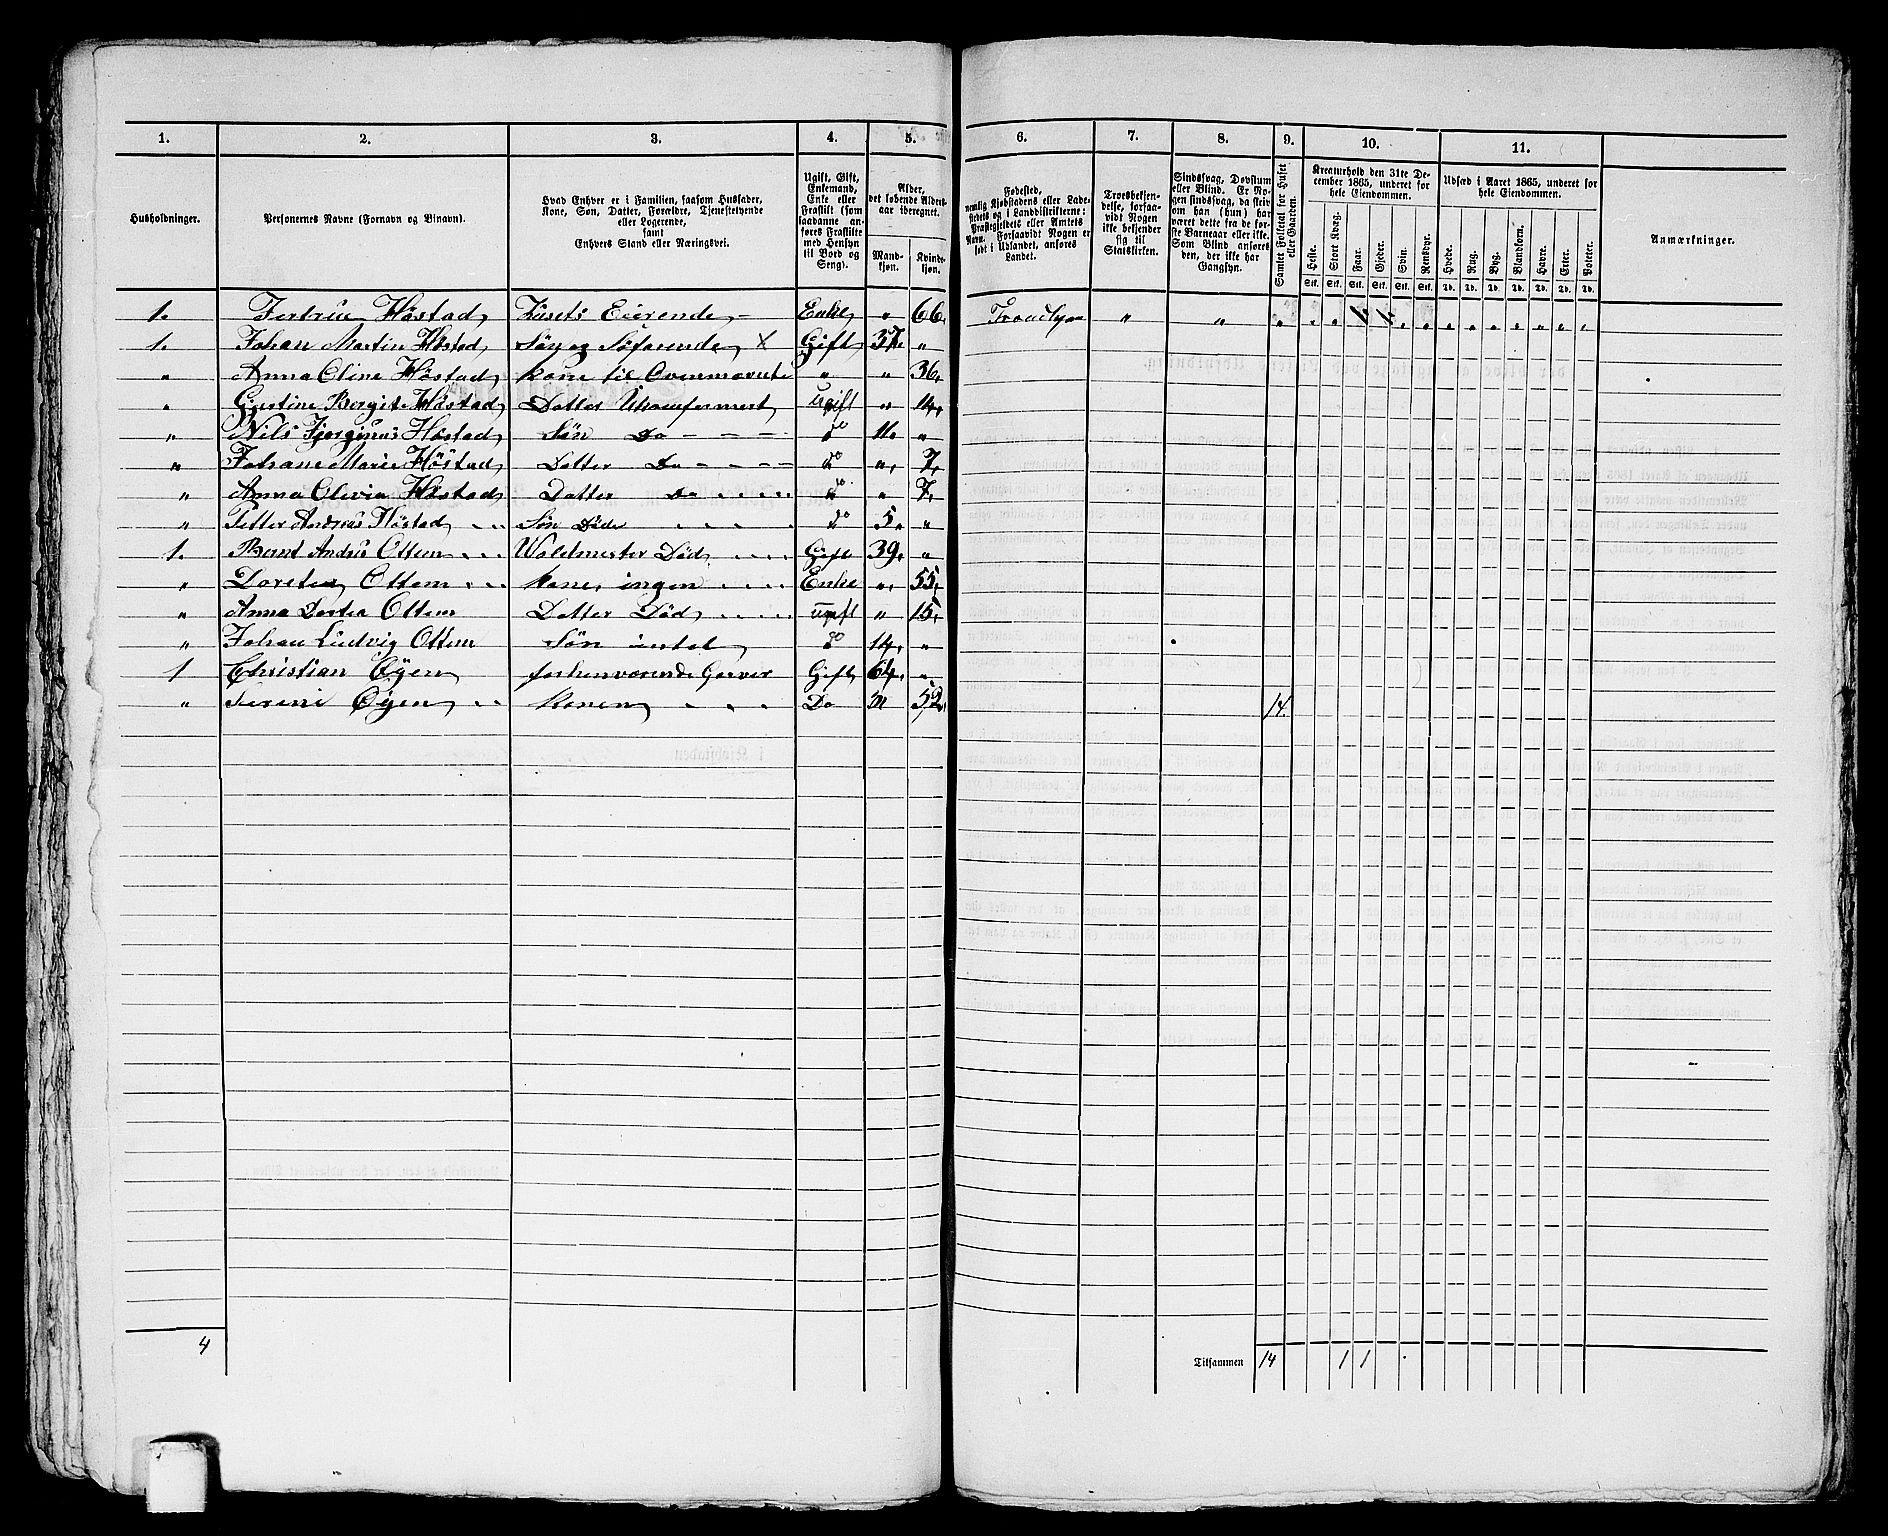 1. 2. 3. 4. 5. 6. 7. 8. 9. 10. 11.
Husholdninger.
Personernes Navne (Fornavn og Binavn).
Hvad Enhver er i Familien, saasom Husfader,
Kone, Søn, Datter, Forældre, Tjenestetyende
eller Logerende,
samt
Enhvers Stand eller Næringsvei.
Ugift, Gift,
Enkemand,
Enke eller
Fraskilt (som
saadanne an-
føres Fraskilte
med Hensyn
til Bord og
Seng).
Alder,
det løbende Alders-
aar iberegnet.
Mand-
kjøn.
Kvinde-
kjøn.
Fødested,
nemlig Kjøbstadens eller Lade-
stedets og i Landdistrikterne:
Præstegjeldets eller Amtets
Navn. Forsaavidt Nogen er
født i Udlandet, anføres
Landet.
Troesbekjen-
delse, forsaa-
vidt Nogen
ikke bekjender
sig til
Statskirken.
Sindssvag, Døvstum
eller Blind. Er No-
gen sindssvag, da skriv
om han (hun) har
været dette fra de før-
ste Barneaar eller ikke.
Som Blind ansøres
den, der ikke har
Gangsyn.
Samlet Folketal for Huset
eller Gaarden.
Kreaturhold den 31te De-
cember 1865, underet for
hele Eiendommen.
Heste. Stort Kvæg. Faar. Gjeder. Svin. Rensdyr.
Stk. Stk. Stk. Stk. Stk. Stk.
Udsæd i Aaret 1865, underet for
hele Eiendommen.
Hvede. Rug. Byg. Blandkorn. Havre. Erter. Poteter.
Td. Td. Td. Td. Td. Td. Td.
Anmærkninger.
1. Høstad Husets Eierende Enke " 66. "  "
1. Johan Martin Høstad Søn og Søfarende X Gift 37. "
" Anna Oline Høstad Kone til Ovennævnte " " 36.
" Høstad Datter Ukonfermert ugift " 14.
" Nils Høstad Søn Do do 11. "
" Johane Marie Høstad Datter Do do " 7.
" Anna Olivia Høstad Datter Do do " 7.
" Petter Andreas Høstad Søn do 5. "
1. Bernt Ottem Død Gift 39. "
" Ottem Kone, ingen Enke " 55.
" Anna Ottem Datter Død ugift " 15.
" Johan Ludvig Ottem Søn intet do 14. "
1 Christian Øyen forhenværende Garver Gift 64. "
" Øyen Konen Do " 52. 14.
4 Tilsammen 14 1 1